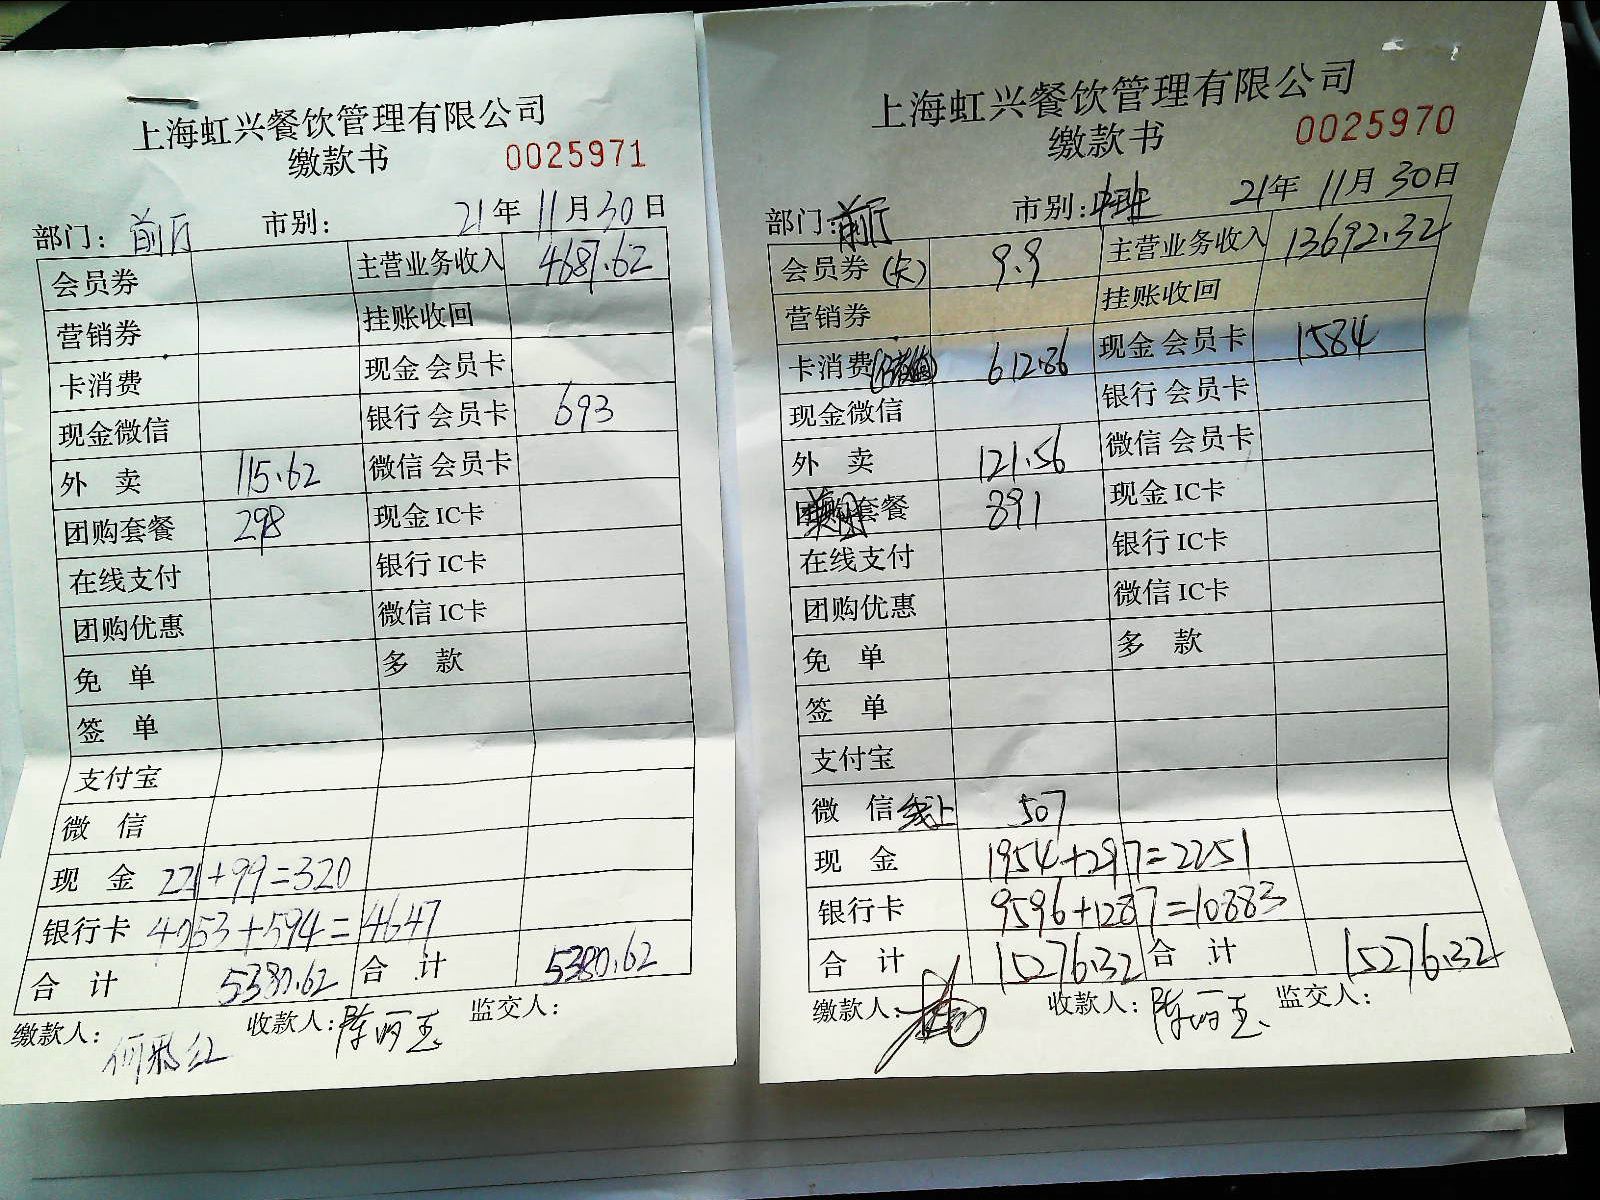 上海虹兴餐饮管理有限公司
缴款书 0025971
部门: 前厅 市别: 21年 11月30日
会员券 主营业务收入 4687.62
营销券 挂账收回
卡消费 现金 会员卡
现金微信 银行 会员卡 693
外 卖 115.62 微信 会员卡
团购套餐 298 现金 IC卡
在线支付 银行 IC卡
团购优惠 微信 IC卡
免 单 多 款
签 单
支付宝
微 信
现 金 221+99=320
银行卡 4053+594=4647
合 计 5380.62 合 计 5380.62
缴款人: 收款人: 陈丽玉 监交人:
上海虹兴餐饮管理有限公司
缴款书 0025970
部门: 前厅 市别: 中班 21年 11月 30日
会员券 (卡) 9.9 主营业务收入 13692.32
营销券 挂账收回
卡消费 612.86 现金 会员卡 1584
现金微信 银行 会员卡
外 卖 121.56 微信 会员卡
团购套餐 891 现金 IC卡
在线支付 银行 IC卡
团购优惠 微信 IC卡
免 单 多 款
签 单
支付宝
微 信 线上 507
现 金 1954+297=2251
银行卡 9596+1287=10883
合 计 15276.32 合 计 15276.32
缴款人: 收款人: 陈丽玉 监交人: